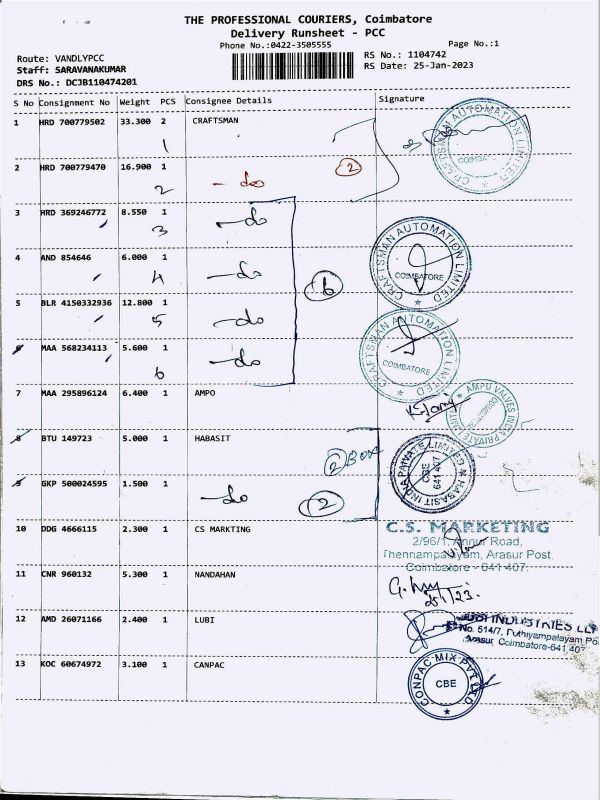 THE PROFESSIONAL COURIERS, Coimbatore
Delivery Runsheet - PCC
Phone No.:0422-3505555
Page No.:1
Route: VANDLYPCC
RS No.: 1104742
Staff: SARAVANAKUMAR
RS Date: 25-Jan-2023
DRS No.: DCJB110474201
S No Consignment No Weight PCS Consignee Details Signature
1 HRD 700779502 33.300 2 CRAFTSMAN
1
CRAFTSMAN AUTOMATION LIMITED
2 HRD 700779470 16.900 1 - do 2
2
3 HRD 369246772 8.550 1 - do
3
CRAFTSMAN AUTOMATION LIMITED COIMBATORE
4 AND 854646 6.000 1 - do 6
4
5 BLR 4150332936 12.800 1 - do
5
CRAFTSMAN AUTOMATION LIMITED COIMBATORE
6 MAA 568234113 5.600 1 - do
6
7 MAA 295896124 6.400 1 AMPO
AMPO VALVES INDIA PRIVATE LIMITED
8 BTU 149723 5.000 1 HABASIT
2 Box
HABASIT INDIA PRIVATE LIMITED CBE 641 407
9 GKP 500024595 1.500 1 - do 2
10 DDG 4666115 2.300 1 CS MARKTING
C.S. MARKETING
2/96/1, Annur Road,
Thennampalayam, Arasur Post,
Coimbatore - 641 407.
11 CNR 960132 5.300 1 NANDAHAN
25/1/23.
12 AMD 26071166 2.400 1 LUBI
LUBI INDUSTRIES LLP
No. 514/7, Puthiyampalayam Po
Arasur Coimbatore-641 407
13 KOC 60674972 3.100 1 CANPAC
CONPAC MIX PVT LTD CBE